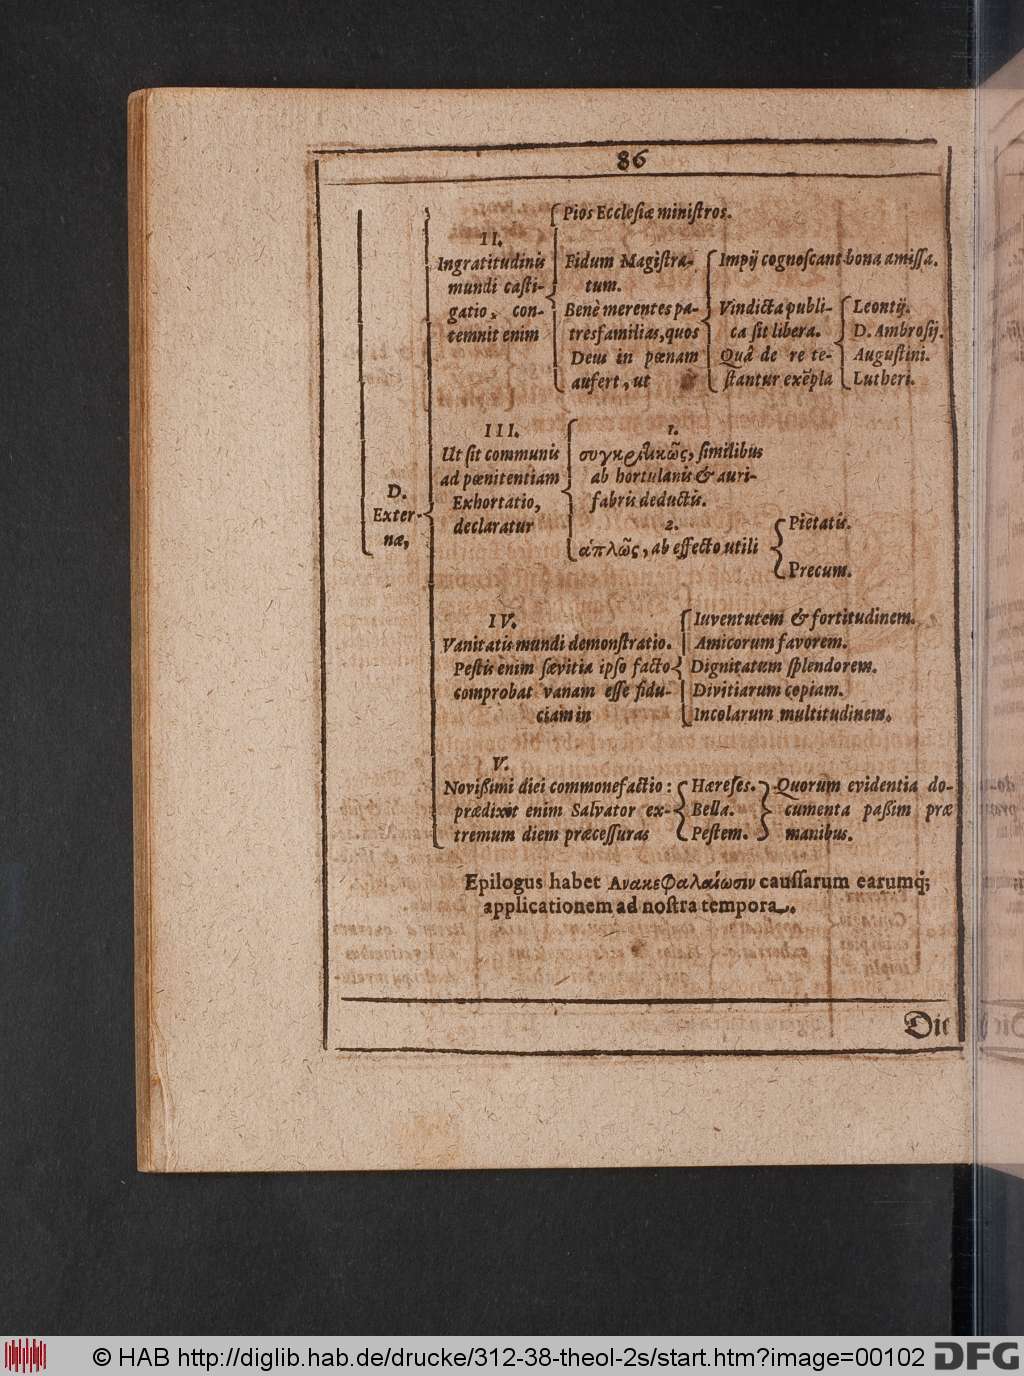 86
D.
Exter-
næ,
II.
Ingratitudinis
mundi casti-
gatio, con-
temnit enim
Pios Ecclesiæ ministros.
Fidum Magistra-
tum.
Benè merentes pa-
tresfamilias, quos
Deus in pœnam
aufert, ut
Impij cognoscant bona amissa.
Vindicta publi-
ca sit libera.
Quâ de re te-
stantur exẽpla
Leontij.
D. Ambrosij.
Augustini.
Lutheri.
III.
Ut sit communis
ad pœnitentiam
Exhortatio,
declaratur
1.
συγκριτικῶς, similibus
ab hortulanis & auri-
fabris deductis.
2.
ἁπλῶς, ab effecto utili
Pietatis.
Precum.
IV.
Vanitatis mundi demonstratio.
Pestis enim sævitia ipso facto
comprobat vanam esse fidu-
ciam in
Iuventutem & fortitudinem.
Amicorum favorem.
Dignitatum splendorem.
Divitiarum copiam.
Incolarum multitudinem.
V.
Novißimi diei commonefactio:
prædixit enim Salvator ex-
tremum diem præcessuras
Hæreses.
Bella.
Pestem.
Quorum evidentia do-
cumenta paßim præ
manibus.
Epilogus habet Ανακεφαλαίωσιν caussarum earumq́;
applicationem ad nostra tempora.
Die
© HAB http://diglib.hab.de/drucke/312-38-theol-2s/start.htm?image=00102
DFG